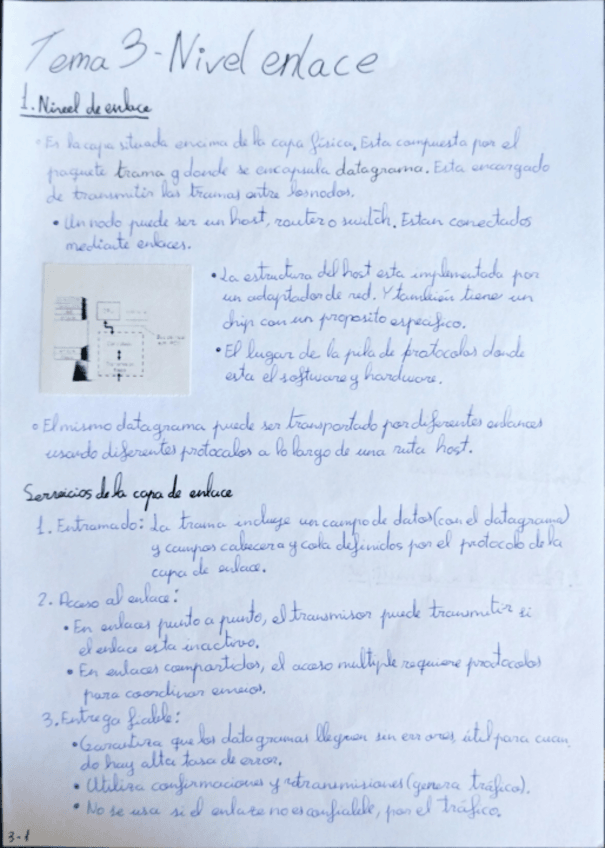 Tema 3-Nivel enlace
1. Nivel de enlace
• Es la capa situada encima de la capa física. Esta compuesta por el
paquete trama y donde se encapsula datagrama. Esta encargado
de transmitir las tramas entre los nodos.
• Un nodo puede ser un host, router o switch. Estan conectados
mediante enlaces.
• La estructura del host esta implementada por
un adaptador de red. Y también tiene un
chip con un proposito especifico.
• El lugar de la pila de protocolos donde
esta el software y hardware.
• El mismo datagrama puede ser transportado por diferentes enlances
usando diferentes protocolos a lo largo de una ruta host.
Servicios de la capa de enlace
1. Entramado: La trama incluye un campo de datos (con el datagrama)
y campos cabecera y cola definidos por el protocolo de la
capa de enlace.
2. Acceso al enlace:
• En enlaces punto a punto, el transmisor puede transmitir si
el enlace esta inactivo.
• En enlaces compartidos, el acceso multiple requiere protocolos
para coordinar envios.
3. Entrega fiable:
• Garantiza que los datagramas lleguen sin errores, útil para cuan
do hay alta tasa de error.
• Utiliza confirmaciones y retransmisiones (genera tráfico).
• No se usa si el enlace no es confiable, por el tráfico.
3-1